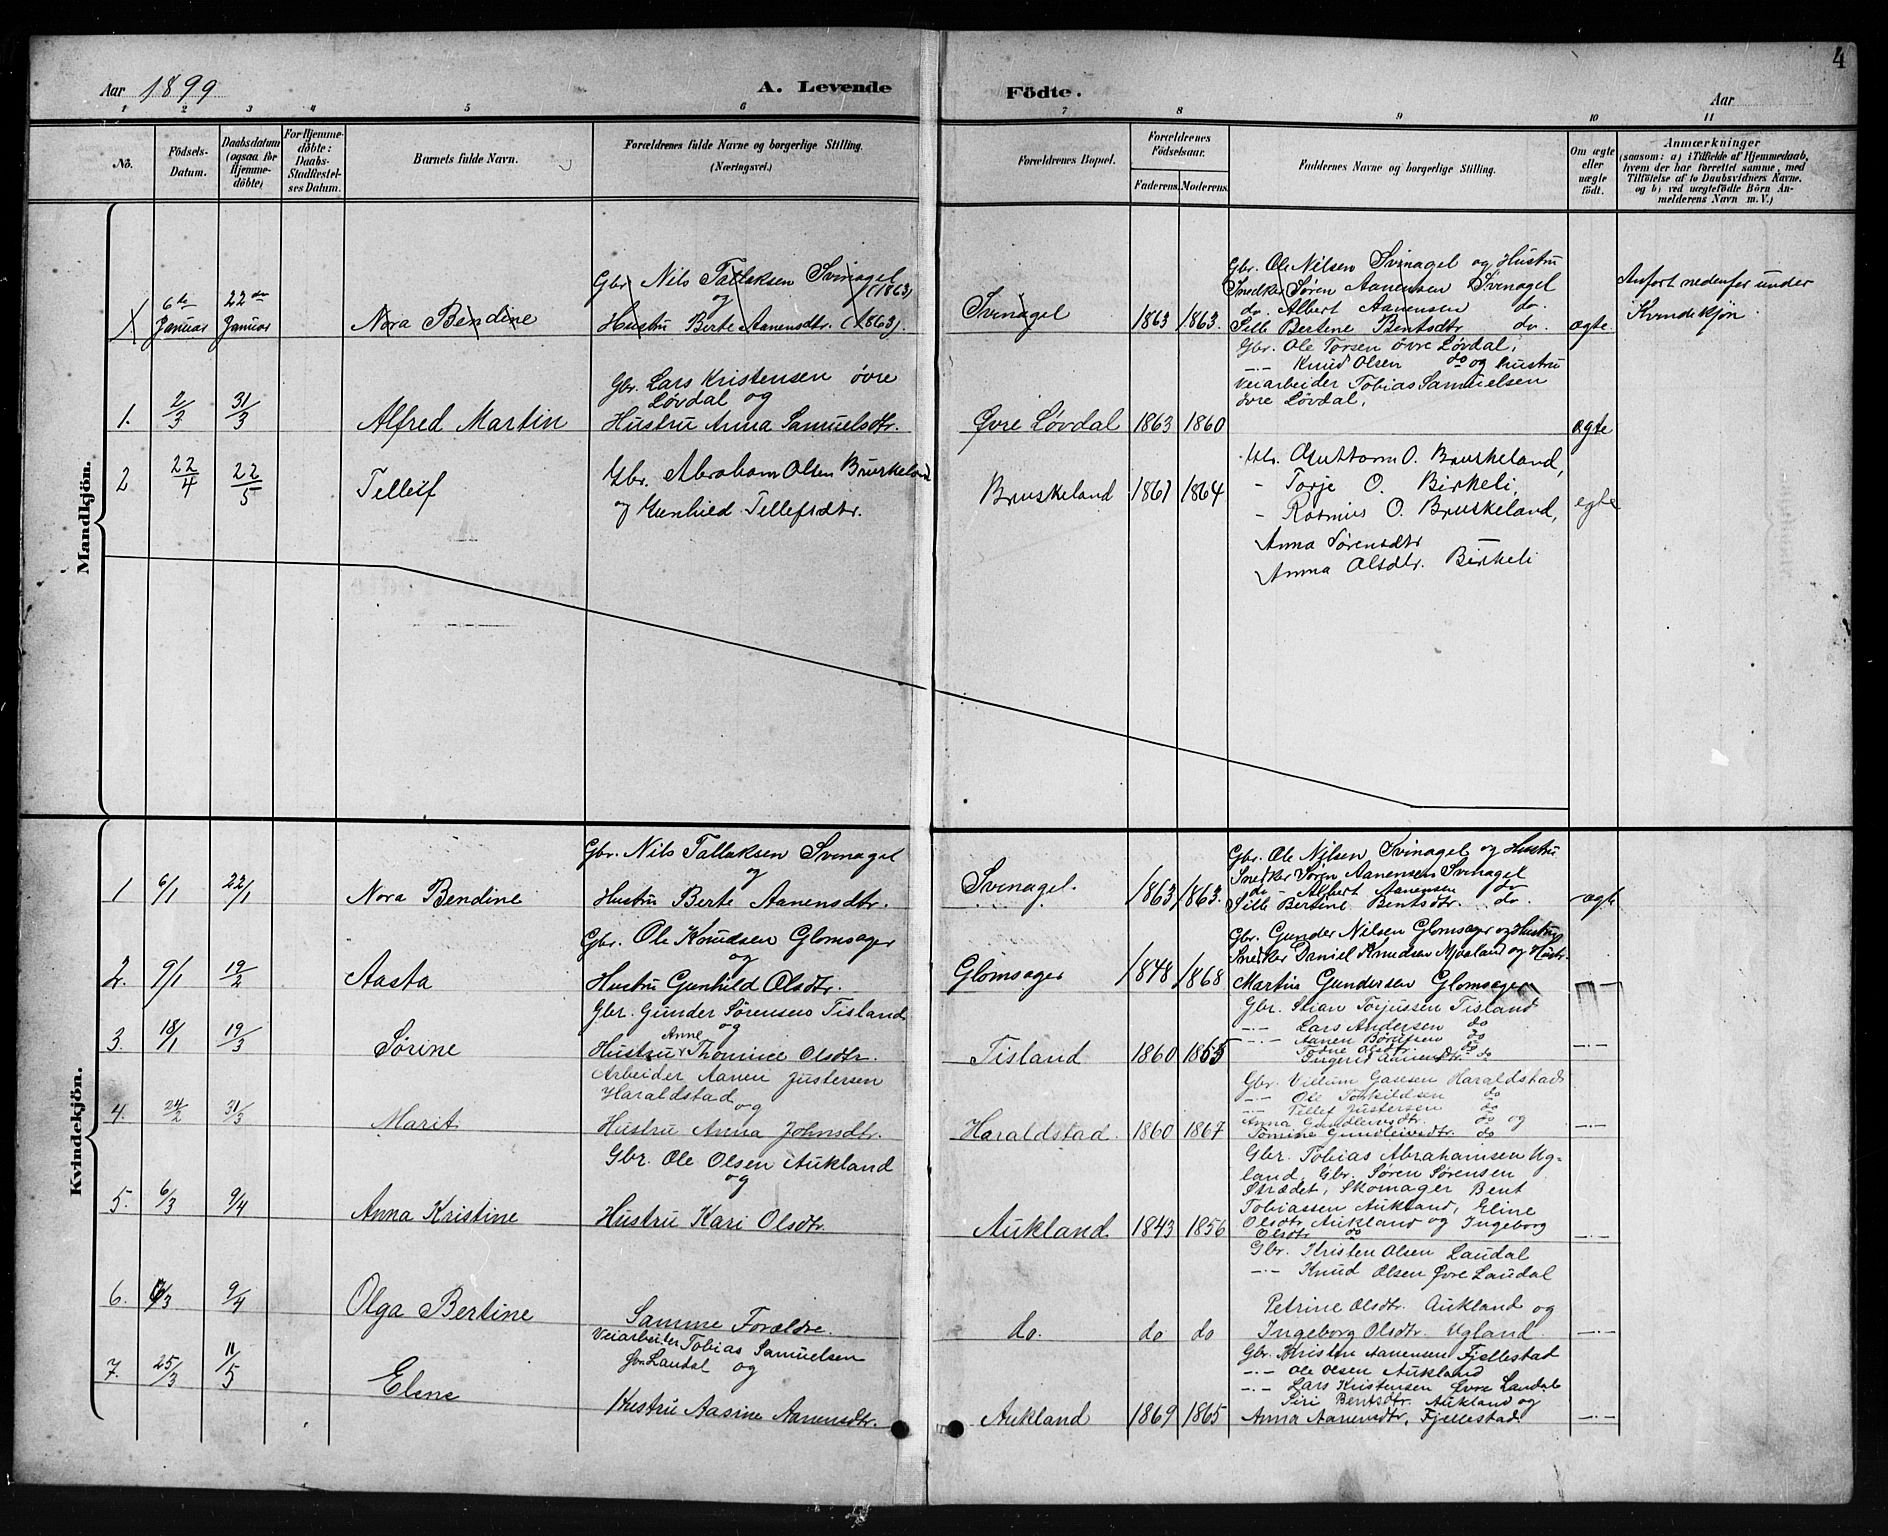 4
Aar 1899
A. Levende
Födte.
Aar
1 2 3 4 5 6 7 8 9 10 11
Nô.
Födsels-
Datum.
Daabsdatum
(ogsaa for
Hjemme-
döbte)
For Hjemme-
döbte:
Daabs-
Stadfæstel-
ses Datum.
Barnets fulde Navn.
Forældrenes fulde Navne og borgerlige Stilling.
(Næringsvei.)
Forældrenes Bopæl.
Forældrenes
Födselsaar.
Faderens. Moderens.
Faddernes Navne og borgerlige Stilling.
Om ægte
eller
uægte
födt.
Anmærkninger
(saasom: a) i Tilfælde af Hjemmedaab,
hvem der har forrettet samme, med
Tilföielse af to Daabsvidners Navne,
og b) ved uægtefödte Börn An-
melderens Navn m. V.)
Mandkjön.
1 6te Januar 22de Januar
Nora Bendine
Gbr Nils Tallaksen Svinagel
og (1863)
Hustru Berte Aanensdtr. (1863).
Svinagel 1863 1863.
Gbr. Ole Nilsen Svinagel og Hustru
Snedker Søren Aanensen Svinagel
do. Albert Aanensen do.
Sille Bertine Bentsdtr do.
ægte.
Anført nedenfor under
Kvindekjøn.
1. 2/3 31/3
Alfred Martin
Gbr. Lars Kristensen øvre
Løvdal og
Hustru Anna Samuelsdtr.
Øvre Løvdal 1863 1860
Gbr. Ole Torsen øvre Løvdal,
-..- Knud Olsen do og hustru
Veiarbeider Tobias Samuelsen
øvre Løvdal,
ægte
2 22/4 22/5
Tellef
Gbr. Abraham Olsen Bruskeland
og Gunhild Tellefsdtr.
Bruskeland 1861 1864
Guttorm O. Bruskeland,
- Torje O. Birkeli,
- Rasmus O. Bruskeland,
Anna Sørensdtr —
Anna Olsdtr. Birkeli
egte
Kvindekjön.
1 6/1 22/1
Nora Bendine
Gbr. Nils Tallaksen Svinagel
og
Hustru Berte Aanensdtr.
Svinagel. 1863 1863.
Gbr. Ole Nilsen Svinagel og Hustru
Snedker Søren Aanensen Svinagel
do - Albert Aanensen do
Sille Bertine Bentsdtr. do.
ægte
2. 9/1 19/2
Aasta
Gbr. Ole Knudsen Glomsager
og
Hustru Gunhild Olsdtr.
Glomsager 1848 1868
Gbr. Gunder Nilsen Glomsager og Hustru
Snedker Daniel Knudsen Mjaaland og Hustr.
Martin Gundersen Glomsager
3. 18/1 19/3
Sørine
Gbr. Gunder Sørensen Tisland
og
Anne
Hustru Thomine Olsdtr.
Tisland 1860 1865
Gbr. Stian Torjusen Tisland
-..- Lars Andersen do
-..- Aanen Børufsen do
Todne Olsdtr. do
Ingerid Aanensdtr. do
-..-
4. 24/2 31/3
Marit
Arbeider Aanen Justersen
Haraldstad og
Hustru Anna Johnsdtr.
Haraldstad. 1860 1867
Gbr. Villum Gasesen Haraldstad
-..- Ole Torkildsen do
-..- Tellef Justersen do
Anna Gundleivsdtr. do og
Tomine Gundleivsdtr. do
-..-
5. 6/3 9/4
Anna Kristine
Gbr. Ole Olsen Aukland
og
Hustru Kari Olsdtr.
Aukland 1843 1856
Gbr. Tobias Abrahamsen Ug-
land, Gbr. Søren Sørensen
Strædet, Skomager Bent
Tobiassen Aukland, Eline
Olsdtr. Aukland og Ingeborg
Olsdtr do
-..-
6. 6/3 9/4
Olga Bertine
Samme Forældre.
do. do do
Gbr. Kristen Olsen Laudal
-..- Knud Olsen Øvre Laudal
Petrine Olsdtr. Aukland og
Ingeborg Olsdtr. Ugland.
-..-
7. 25/3 11/5
Eline
Veiarbeider Tobias Samuelsen
Øvr. Laudal og
Hustru Aasine Aanensdtr.
Aukland 1869 1865
Gbr. Kristen Aanensen Fjellestad
-..- Ole Olsen Aukland
-..- Lars Kristensen Øvre Laudal
Siri Bentsdtr. Aukland og
Anna Aanensdtr, Fjellestad.
-..-